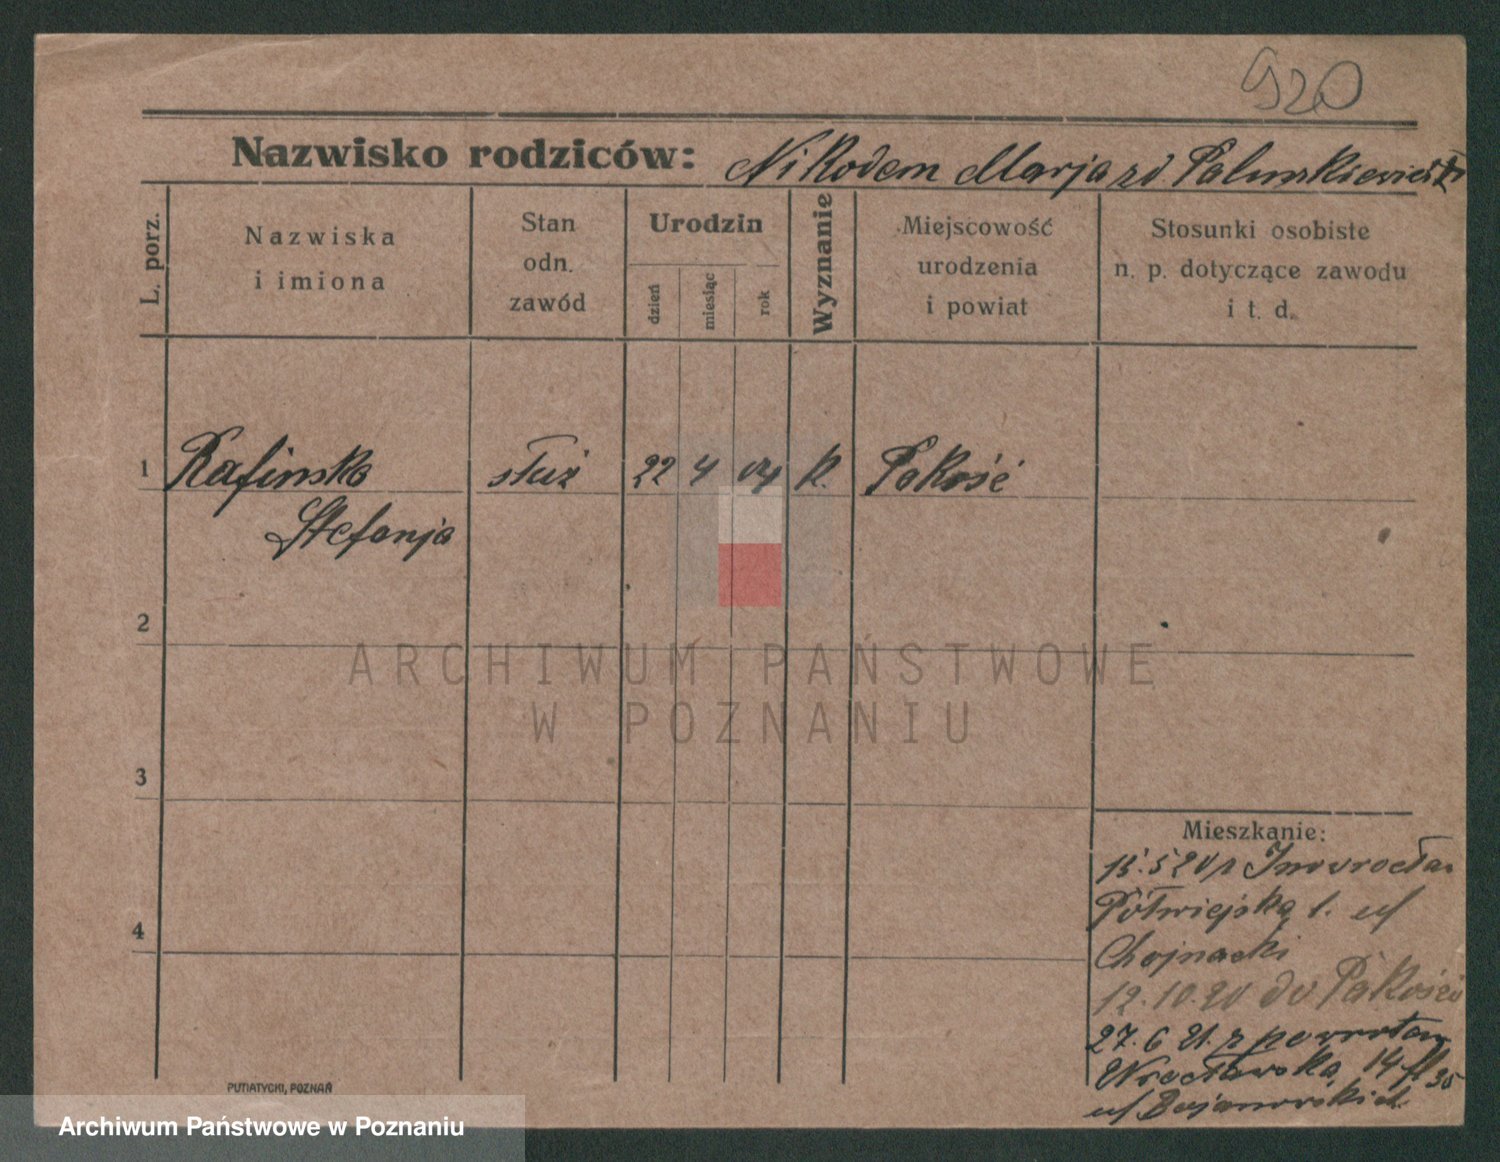 920
Nazwisko rodziców: Nikodem Marja zd
L. porz.
Nazwiska
i imiona
Stan
odn.
zawód
Urodzin
dzień
miesiąc
rok
Wyznanie
Miejscowość
urodzenia
i powiat
Stosunki osobiste
n. p. dotyczące zawodu
i t. d.
1 Rafinska służ 22 4 04 k. Pakość
Stefanja
2
ARCHIWUM PAŃSTWOWE
W POZNANIU
3
Mieszkanie:
15.5 20 z Inowrocław
Półwiejska 1. u/
4
Chojnacki
12.10.20 do Pakości
27.6 21. z powrotem
Wrocławska 14
u/
PUTIATYCKI, POZNAŃ
Archiwum Państwowe w Poznaniu